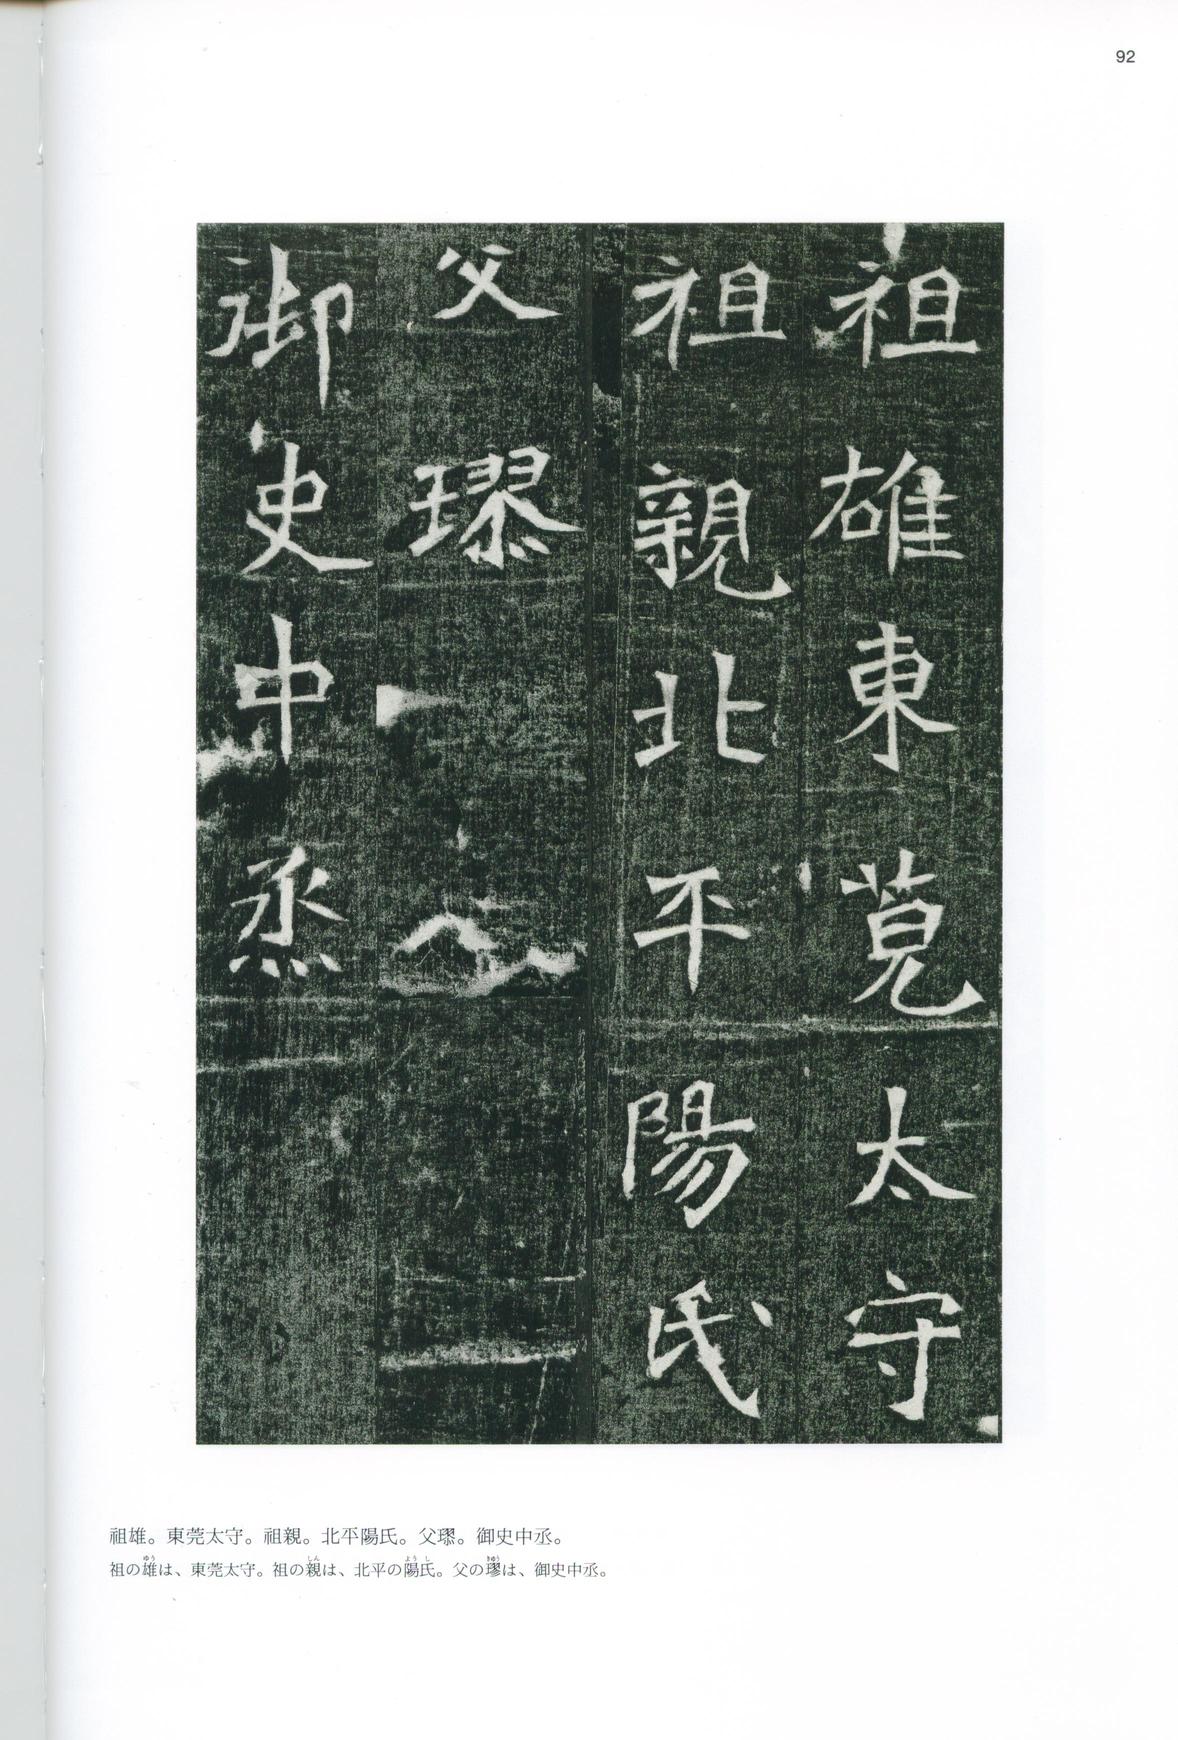 92
祖雄東莞太守
祖親北平陽氏
父璆
御史中丞
祖雄。東莞太守。祖親。北平陽氏。父璆。御史中丞。
祖の雄は、東莞太守。祖の親は、北平の陽氏。父の璆は、御史中丞。
ゆう しん よう し きゆう